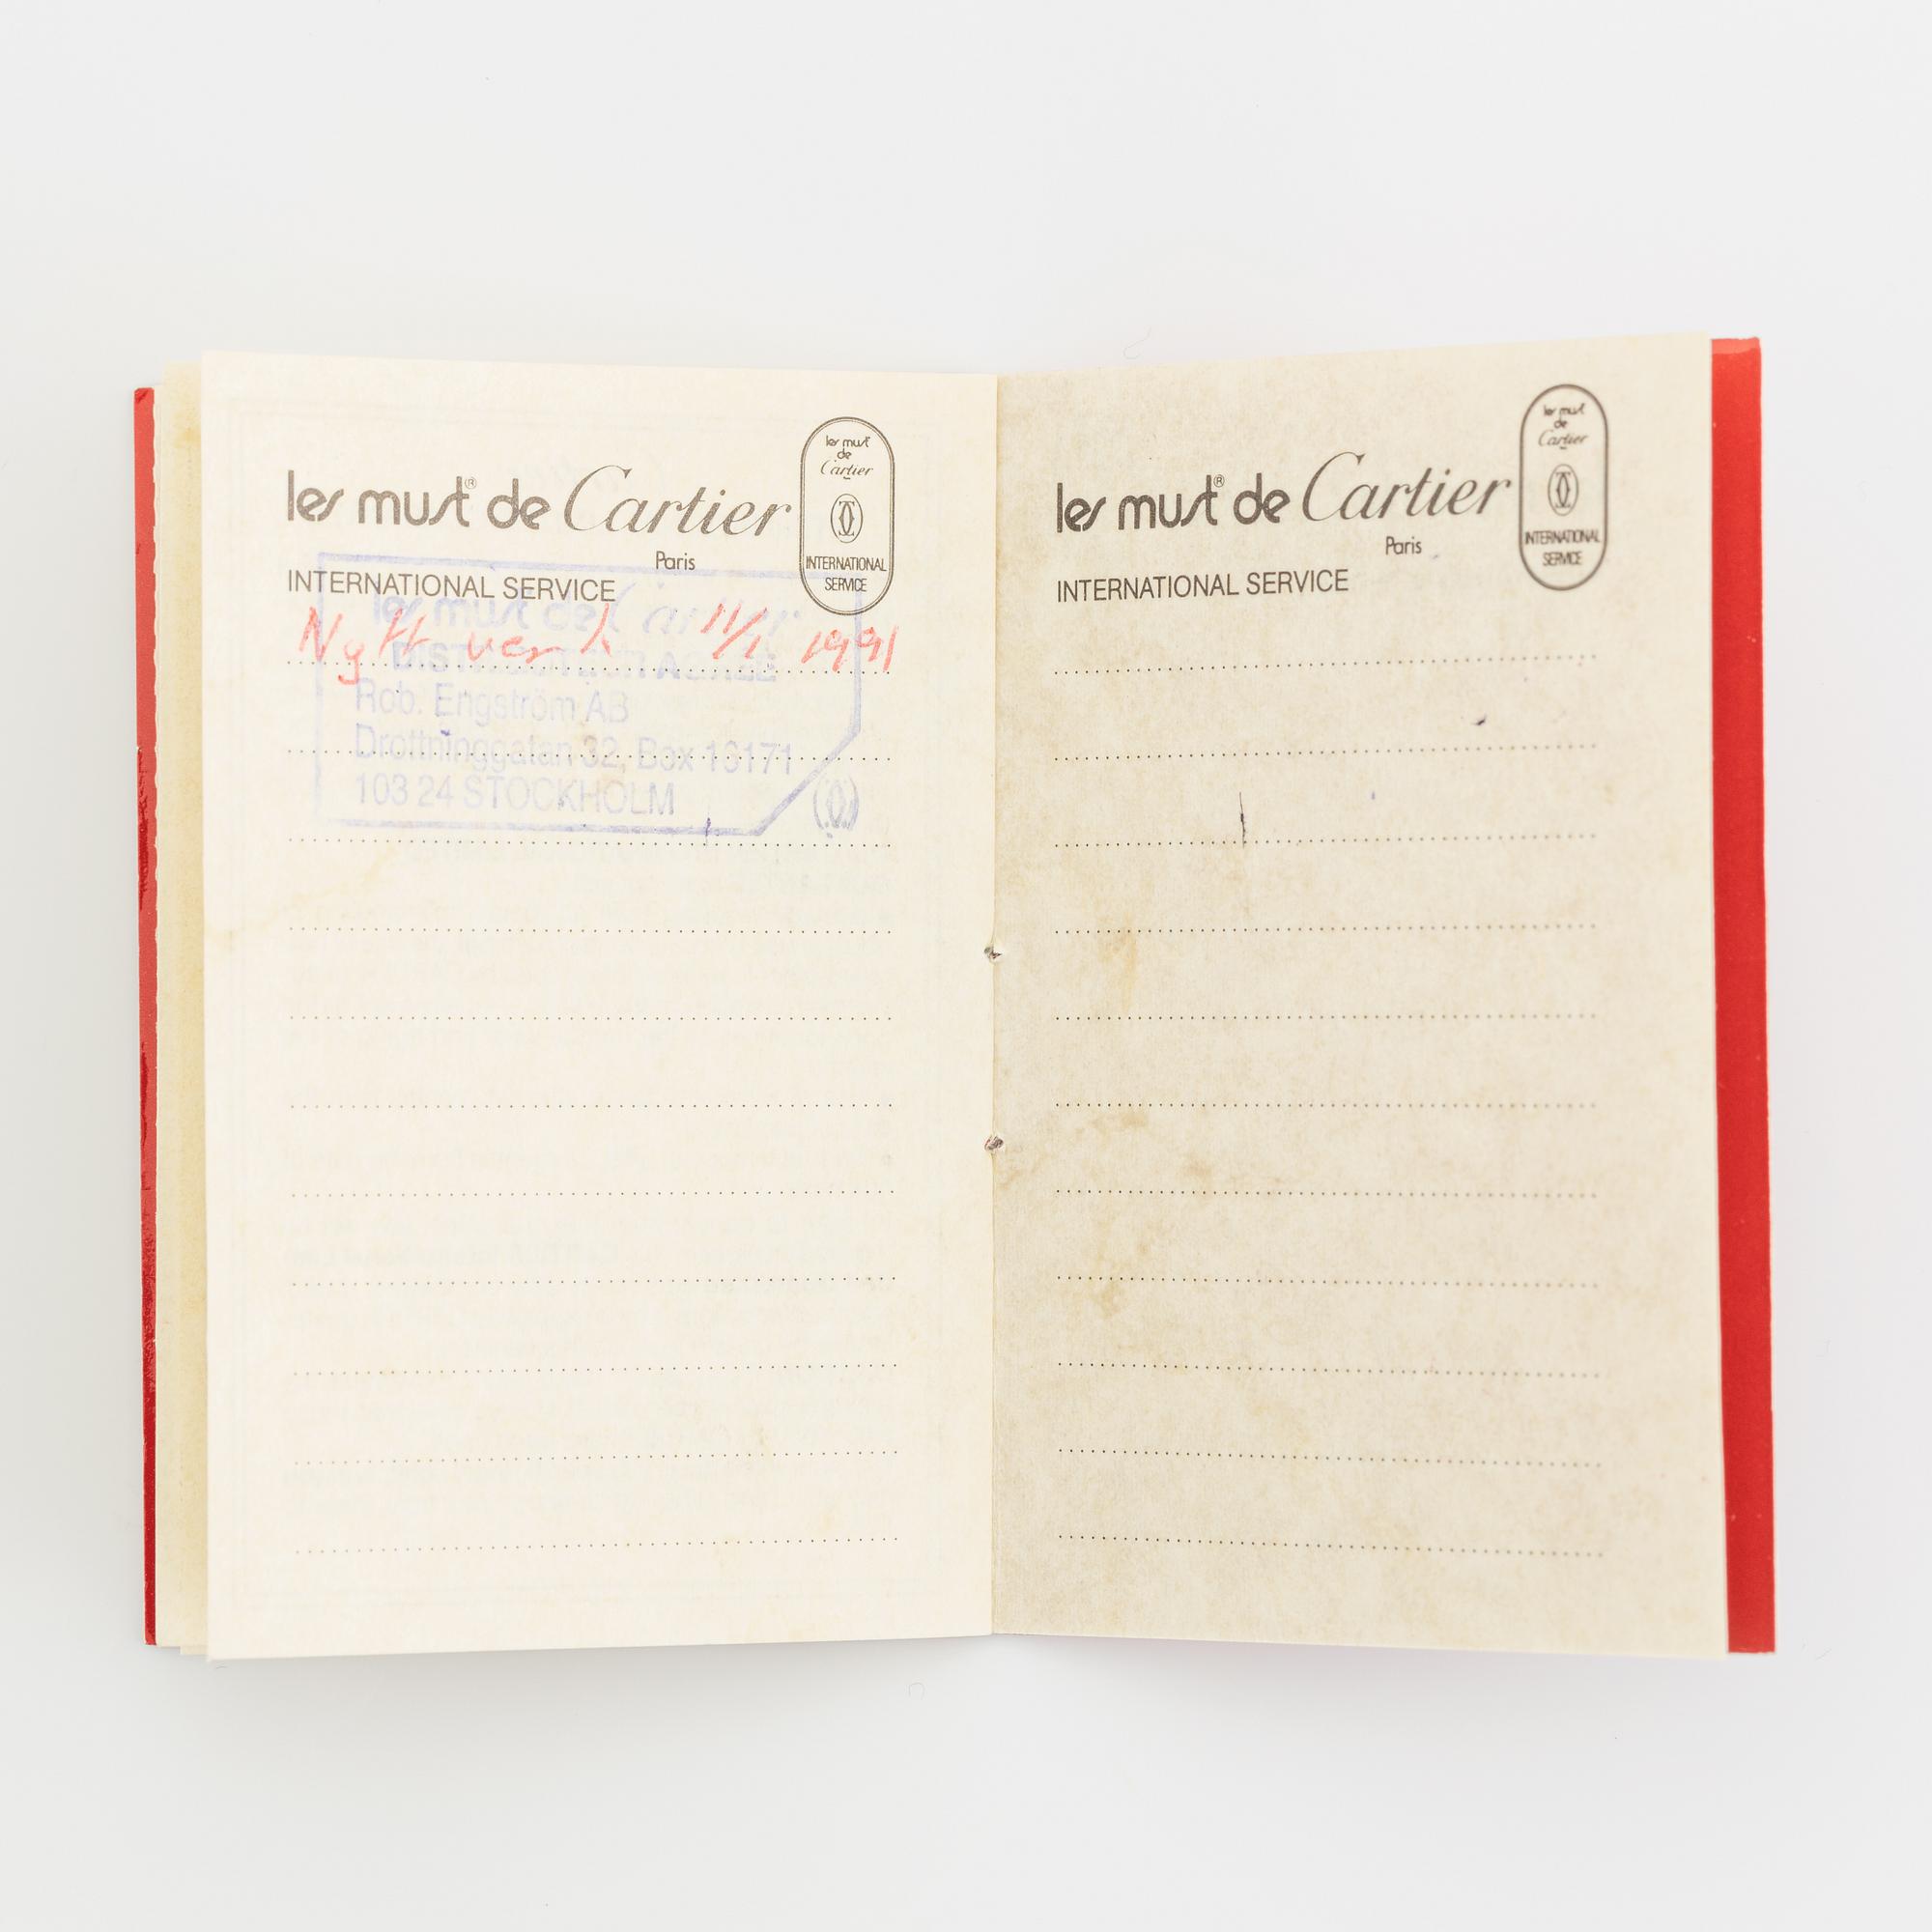 les must® de Cartier
Paris
INTERNATIONAL SERVICE
les must
de
Cartier
INTERNATIONAL
SERVICE
Nytt verk 11/1 1991
les must de Cartier
DISTRIBUTEUR AGREE
Rob. Engström AB
Drottninggatan 32, Box 16171
103 24 STOCKHOLM
les must® de Cartier
Paris
INTERNATIONAL SERVICE
les must
de
Cartier
INTERNATIONAL
SERVICE